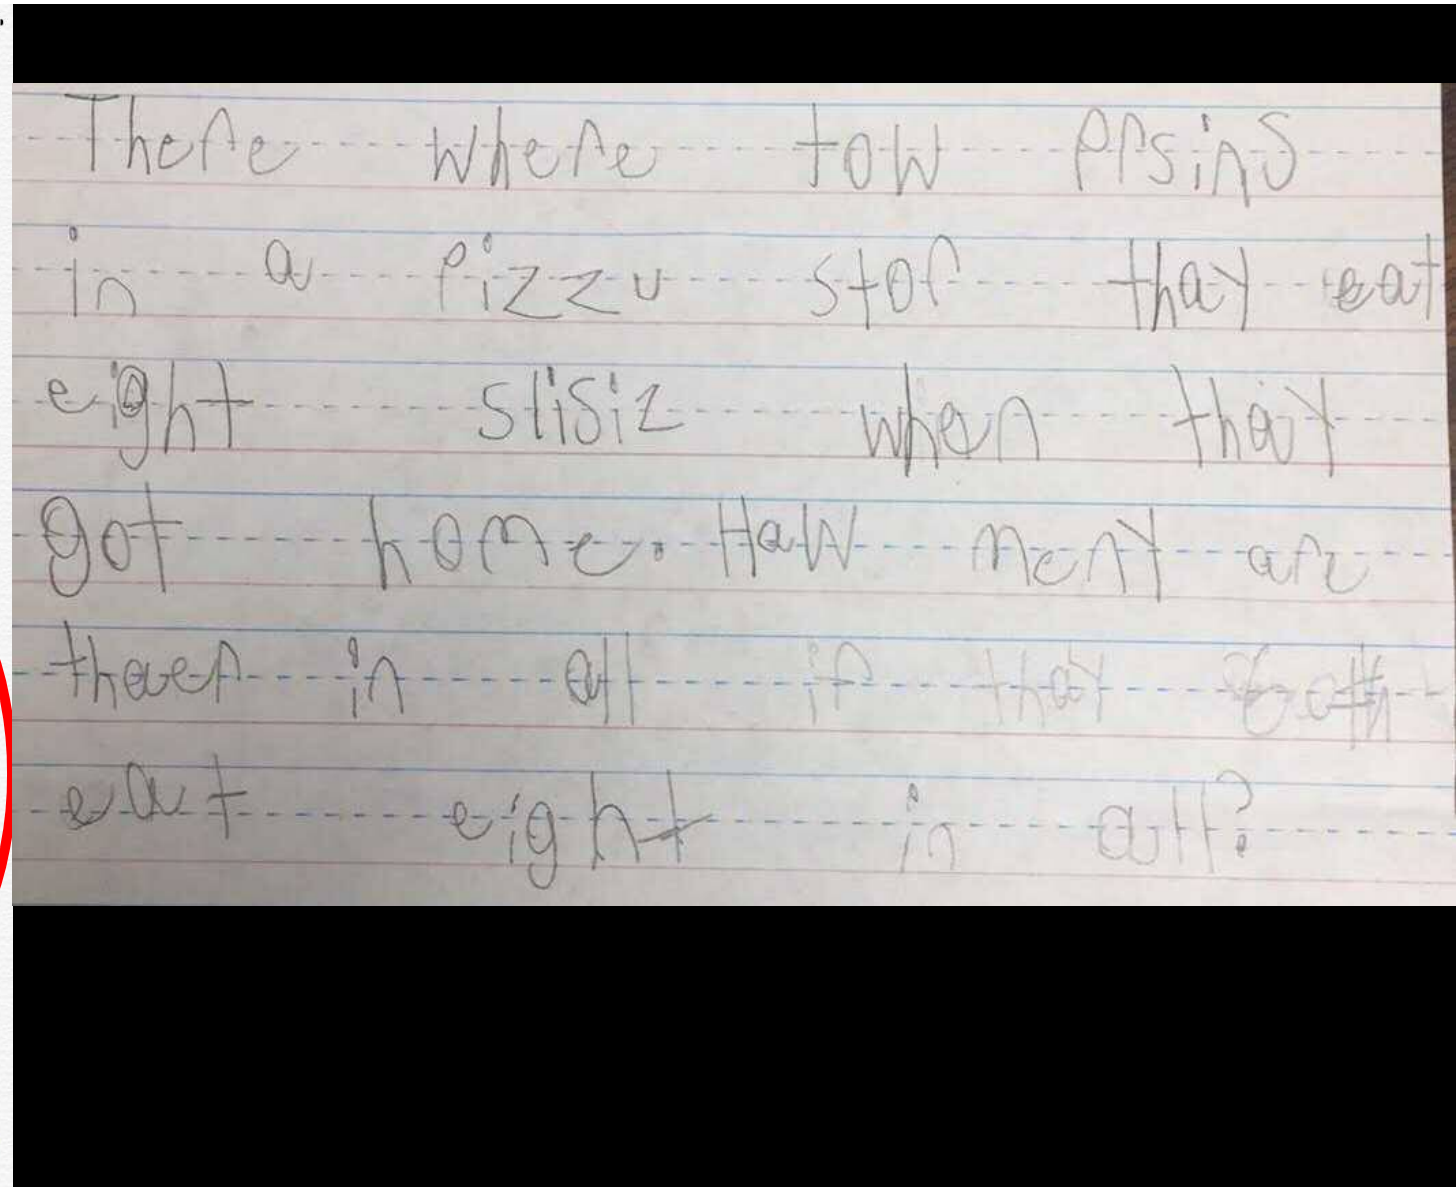 There where tow prsins
in a pizzu stor thay eat
eight slisiz when thay
got home. Haw meny are
thaer in all if thay both
eat eight in all?